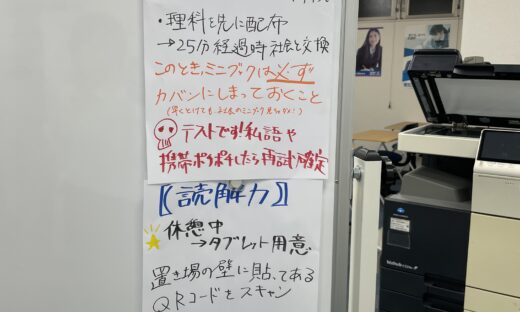 ・理科を先に配布
→25分経過時社会と交換
このとき、ミニブックは必ず
カバンにしまっておくこと
テストです!私語や
携帯ポチポチしたら再試確定
〖読解力〗
休憩中
→タブレット用意
置き場の壁に貼ってある
QRコードをスキャン